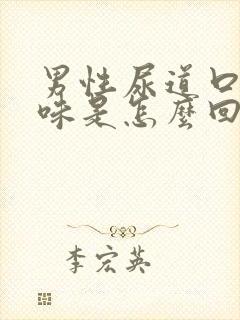 男性尿道口
味是怎麼回
李宏英